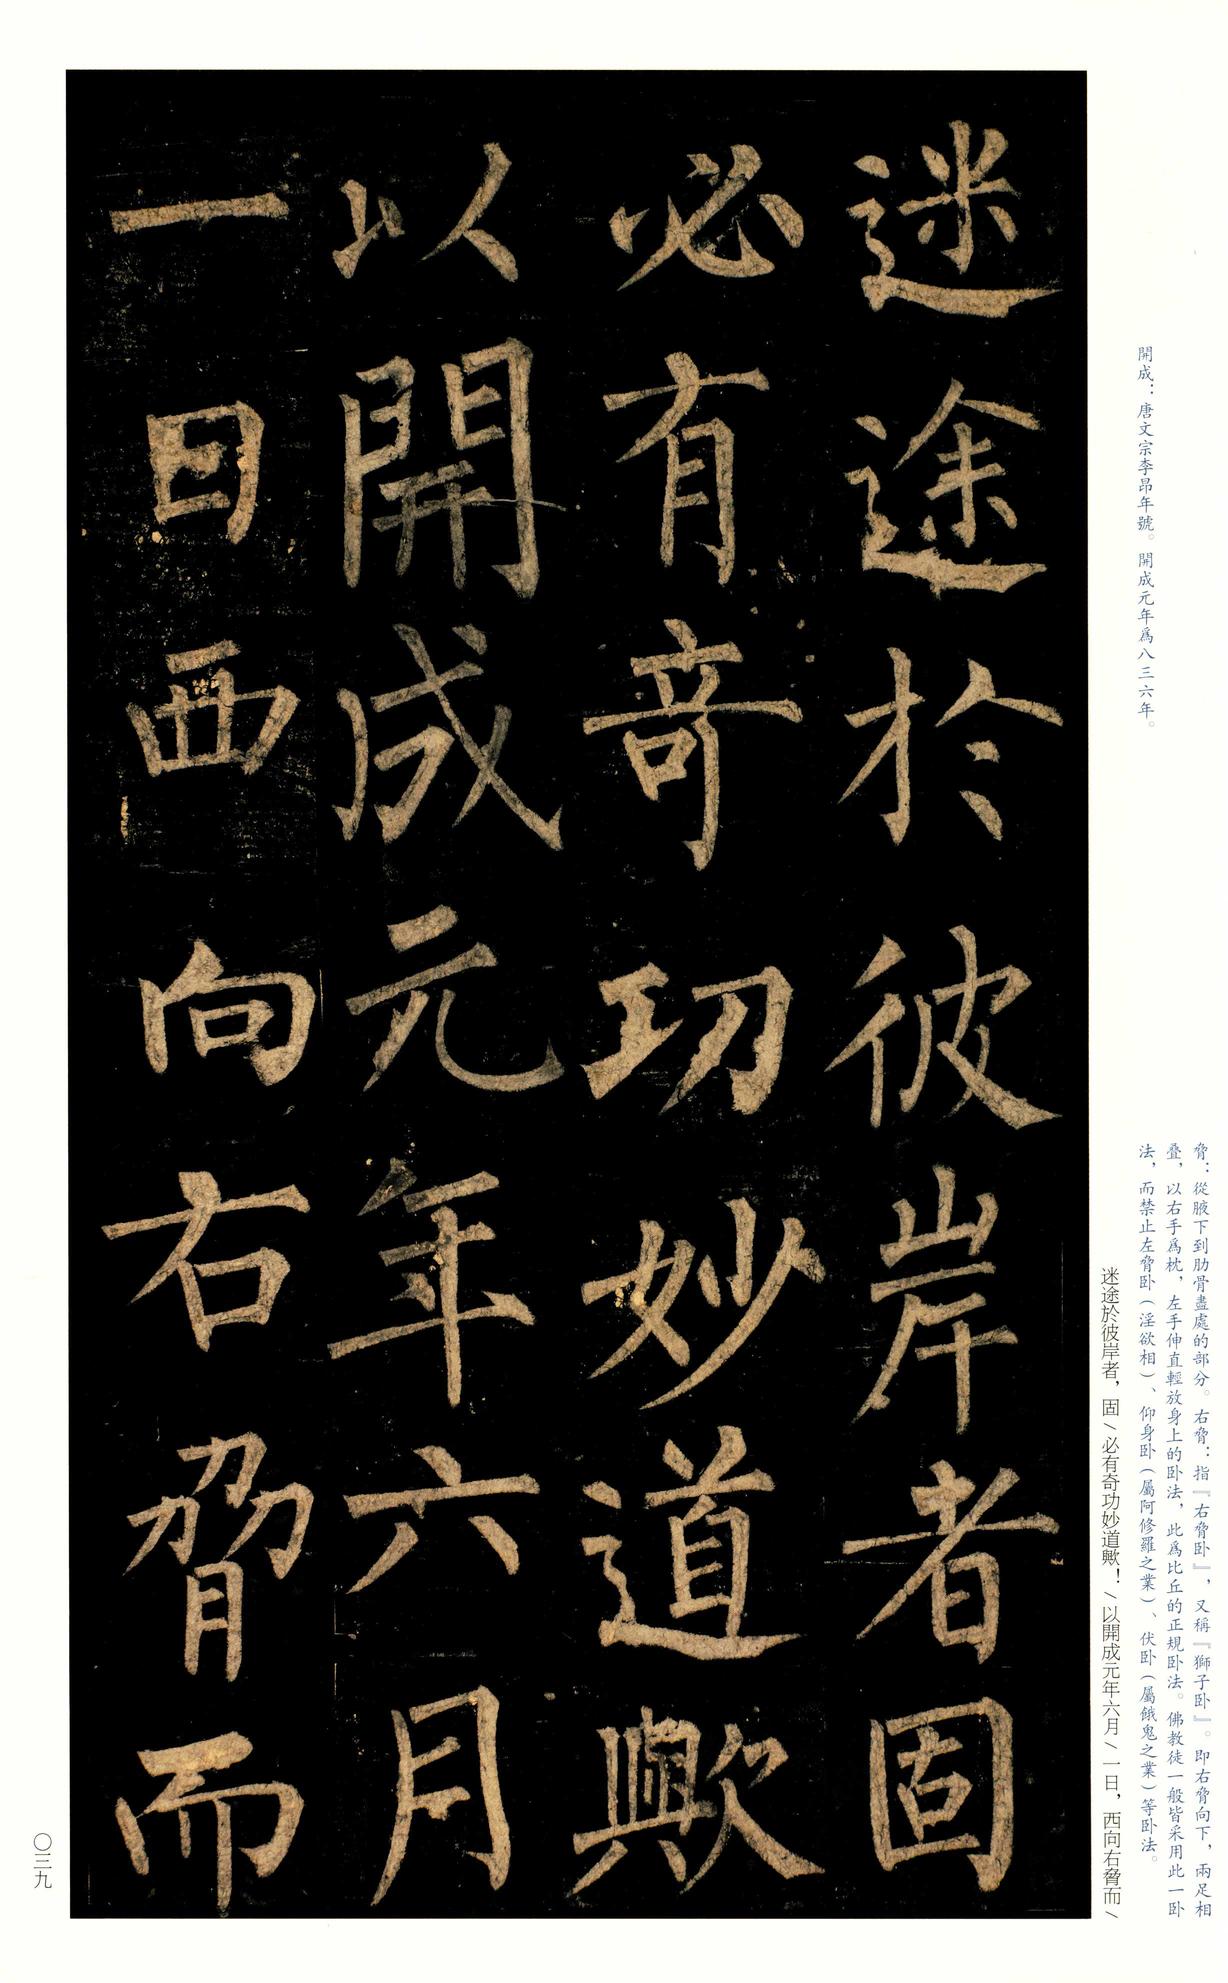 開成：唐文宗李昂年號。開成元年爲八三六年。
脅：從腋下到肋骨盡處的部分。右脅：指『右脅卧』，又稱『獅子卧』。即右脅向下，兩足相
疊，以右手爲枕，左手伸直輕放身上的卧法，此爲比丘的正規卧法。佛教徒一般皆采用此一卧
法，而禁止左脅卧（淫欲相）、仰身卧（屬阿修羅之業）、伏卧（屬餓鬼之業）等卧法。
迷途於彼岸者，固/必有奇功妙道歟！/以開成元年六月/一日，西向右脅而/
迷途於彼岸者固
必有奇功妙道歟
以開成元年六月
一日西向右脅而
〇三九